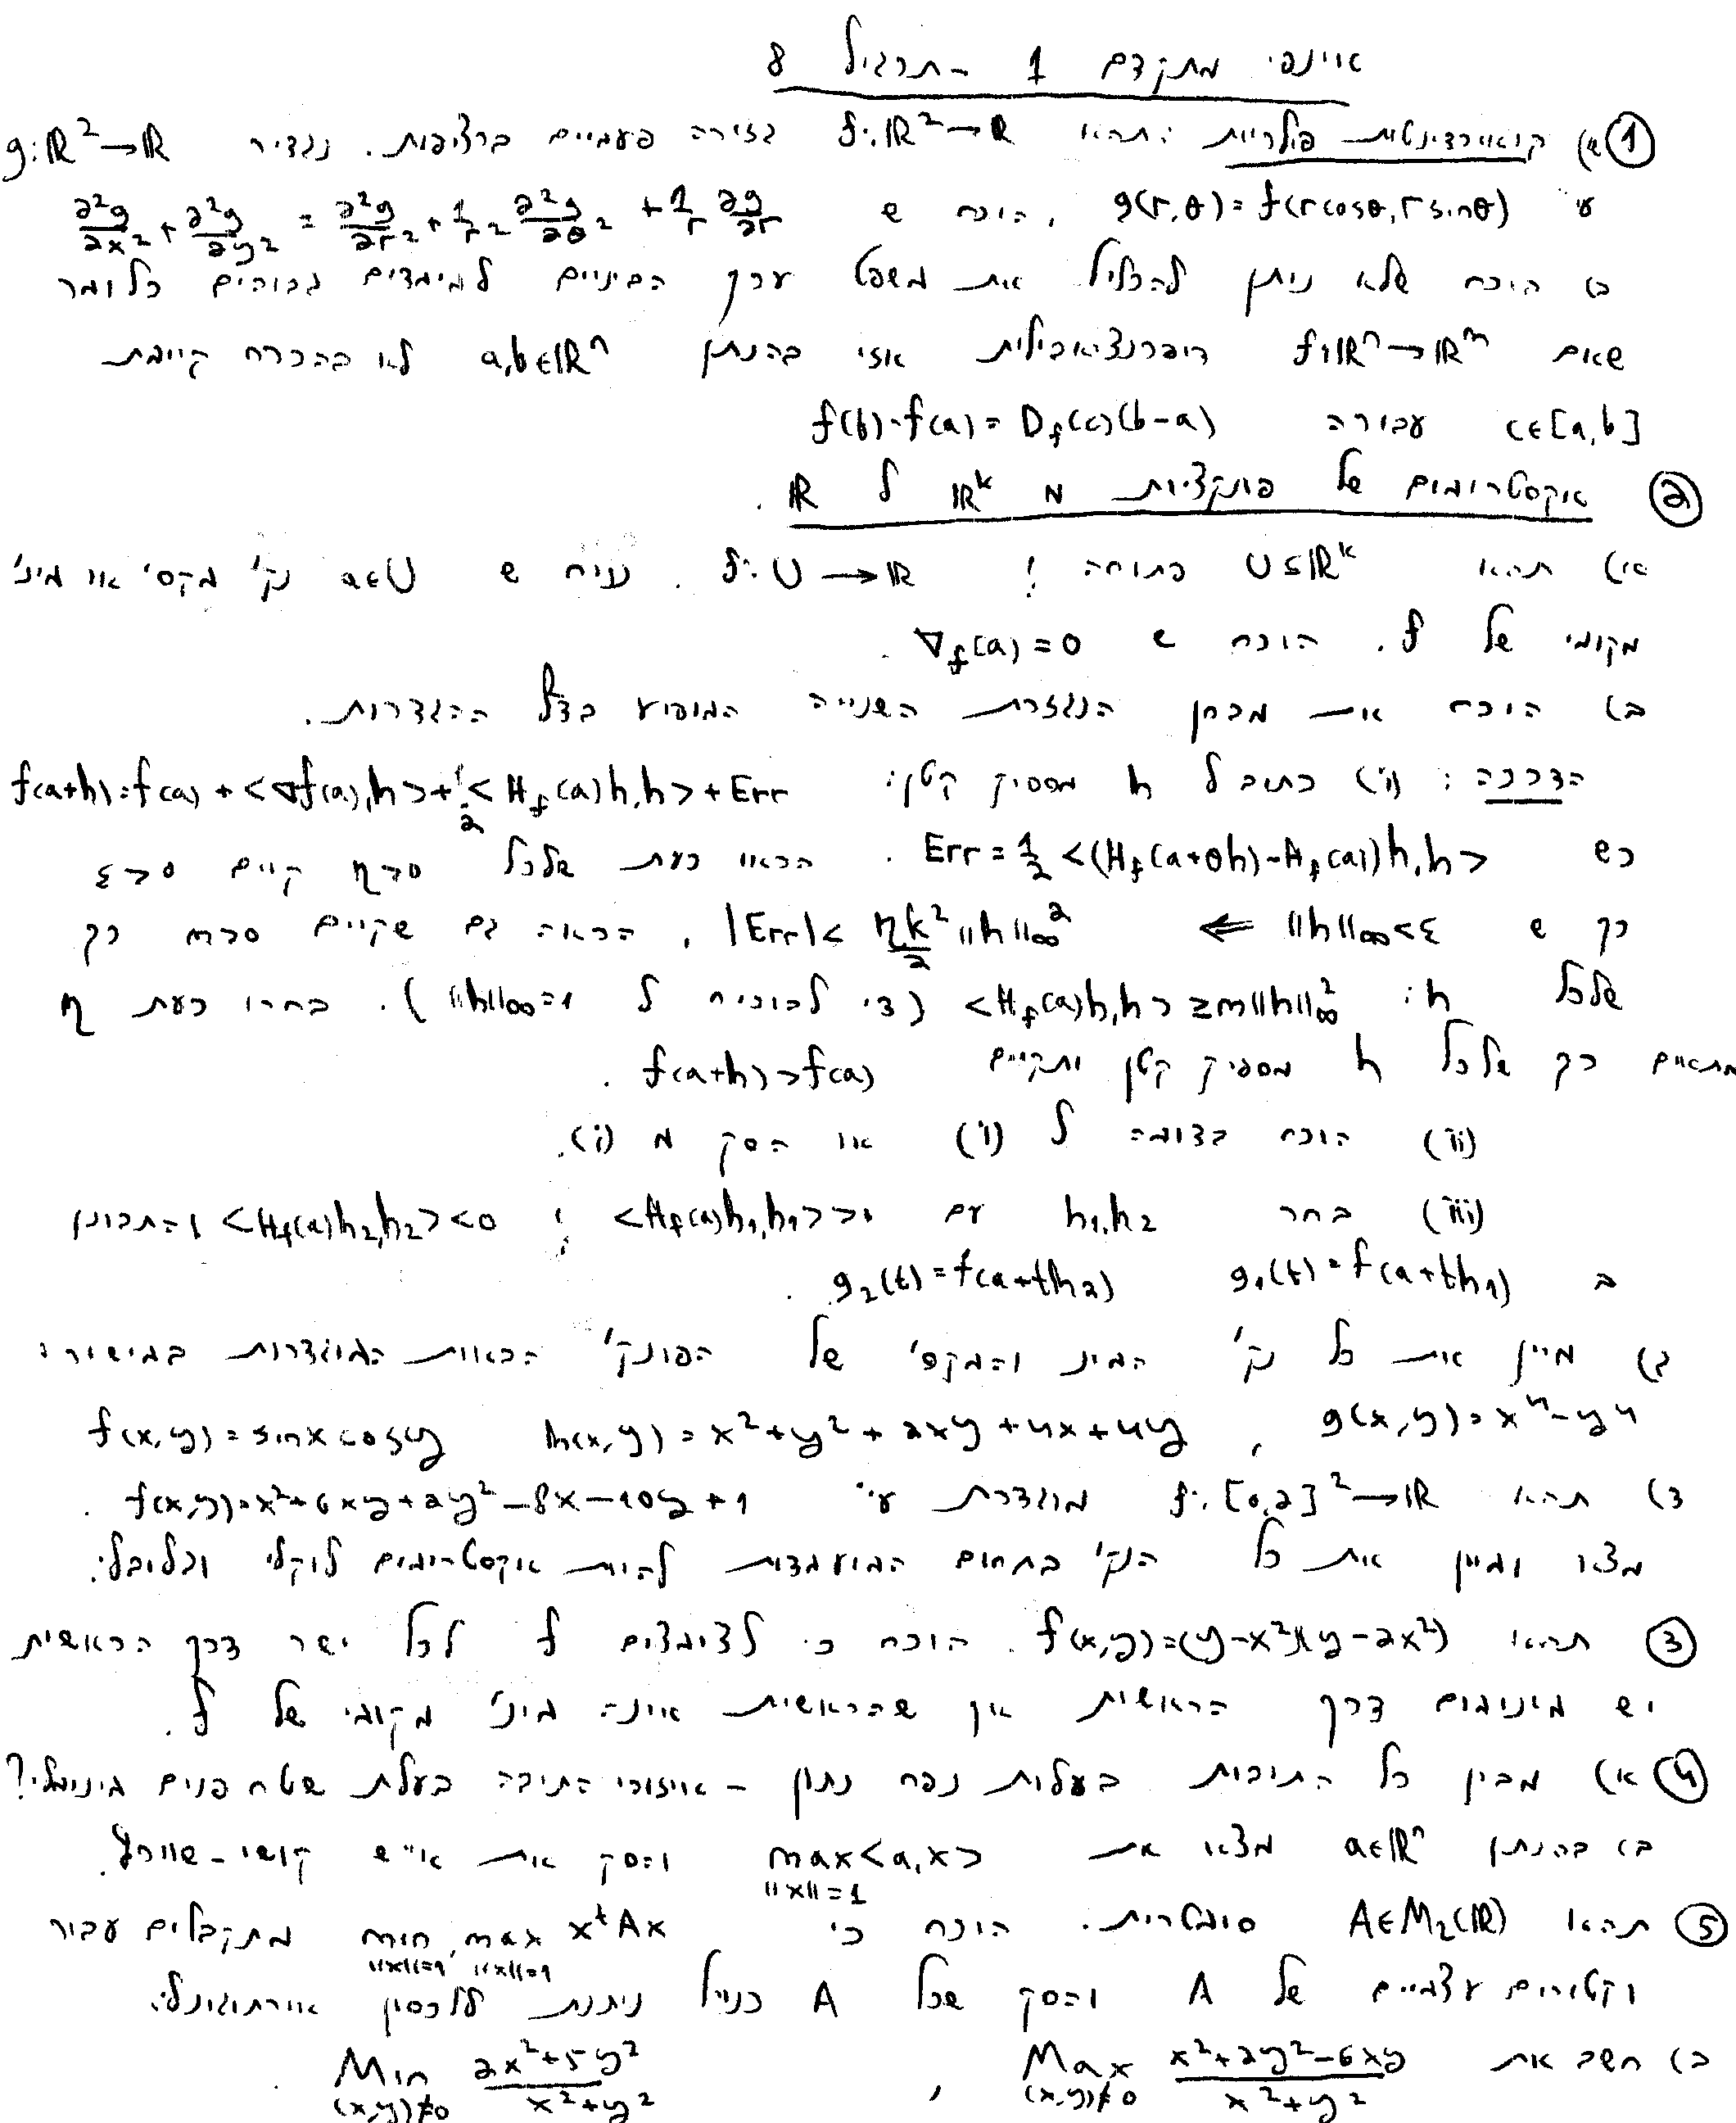 אינפי מתקדם 1 - תרגיל 8
① א) קואורדינטות פולריות: תהא f:ℝ²→ℝ גזירה פעמיים ברציפות. נגדיר g:ℝ²→ℝ
ע"י g(r,θ)=f(rcosθ,rsinθ), הוכח ש ∂²g/∂x²+∂²g/∂y² = ∂²g/∂r²+1/r² ∂²g/∂θ²+1/r ∂g/∂r
ב) הוכח שלא ניתן להכליל את משפט ערך הביניים למימדים גבוהים כלומר
שאם f:ℝⁿ→ℝᵐ דיפרנציאבילית אזי בהנתן a,b∈ℝⁿ לא בהכרח קיימת
c∈[a,b] עבורה f(b)-f(a)=D_f(c)(b-a)
② אקסטרימום של פונקציות מ ℝᵏ ל ℝ.
א) תהא U⊆ℝᵏ פתוחה ו f:U→ℝ. נניח ש a∈U נק' מקס' או מינ'
מקומי של f. הוכח ש ∇_f(a)=0.
ב) הוכח את מבחן הנגזרת השנייה המופיע בדף ההגדרות.
הדרכה: (i) כתוב ל h מספיק קטן: f(a+h)=f(a)+<∇f(a),h>+½<H_f(a)h,h>+Err
כש Err=½<(H_f(a+θh)-H_f(a))h,h>. הראו כעת שלכל η>0 קיים ε>0
כך ש ‖h‖∞<ε ⇐ |Err|<ηk²/2 ‖h‖∞², הראה גם שקיים m>0 כך
שלכל h: <H_f(a)h,h>≥m‖h‖∞² (די להוכיח ל ‖h‖∞=1). בחרו כעת η
מתאים כך שלכל h מספיק קטן יתקיים f(a+h)>f(a).
(ii) הוכח בדומה ל (i) או הסק מ (i).
(iii) בחר h₁,h₂ עם <H_f(a)h₁,h₁>>0 ו <H_f(a)h₂,h₂><0 והתבונן
ב g₁(t)=f(a+th₁) g₂(t)=f(a+th₂).
ג) מיין את כל נק' המינ והמקס' של הפונק' הבאות המוגדרות במישור:
g(x,y)=x⁴-y⁴, h(x,y)=x²+y²+2xy+4x+4y f(x,y)=sinxcosy
ד) תהא f:[0,2]²→ℝ מוגדרת ע"י f(x,y)=x²+6xy+2y²-8x-10y+1.
מצא ומיין את כל הנק' בתחום המועמדות להיות אקסטרימום לוקלי וגלובלי.
③ תהא f(x,y)=(y-x²)(y-2x²). הוכח כי לצימצום f לכל ישר דרך הראשית
יש מינימום דרך הראשית אך שהראשית אינה מינ' מקומי של f.
④ א) מבין כל התיבות בעלות נפח נתון - איזוהי התיבה בעלת שטח פנים מינימלי?
ב) בהנתן a∈ℝⁿ מצאו את max<a,x> ‖x‖=1 והסק את אי"ש קושי-שוורץ.
⑤ תהא A∈M₂(ℝ) סימטרית. הוכח כי min ‖x‖=1, max ‖x‖=1 xᵗAx מתקבלים עבור
וקטורים עצמיים של A והסק שכל A כנ"ל ניתנת ללכסון אורתוגונלי.
ב) חשב את Max (x,y)≠0 (x²+2y²-6xy)/(x²+y²), Min (x,y)≠0 (2x²+5y²)/(x²+y²).